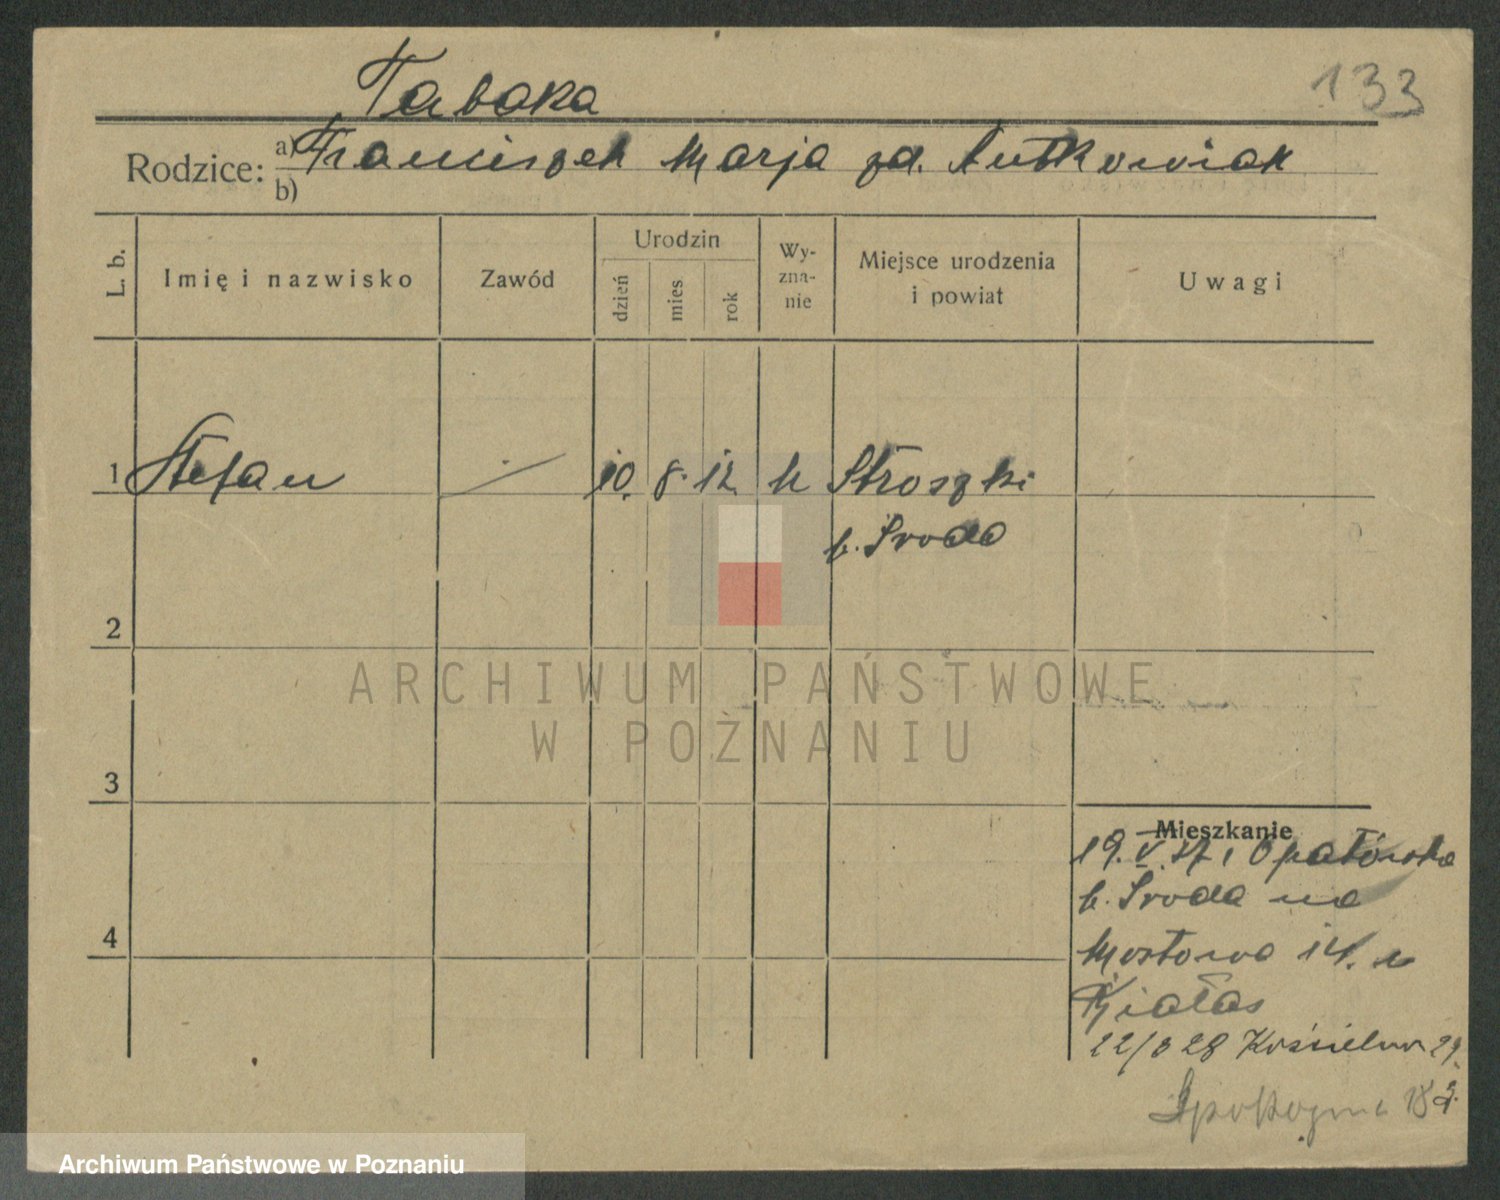 133
Tabaka
Rodzice: a) Franciszek Marja zd. Antkowiak
b)
L. b.
Imię i nazwisko
Zawód
Urodzin
dzień
mies
rok
Wy-
zna-
nie
Miejsce urodzenia
i powiat
Uwagi
1 Stefan 10. 8. 12. k Stroszki
b. Sroda
2
3
4
Mieszkanie
19. V. 27, Opatówka
b. Sroda na
Mostowa 14. u
Białas
22/8 28 Kościelna 29.
Spokojna 18
ARCHIWUM PAŃSTWOWE
W POZNANIU
Archiwum Państwowe w Poznaniu